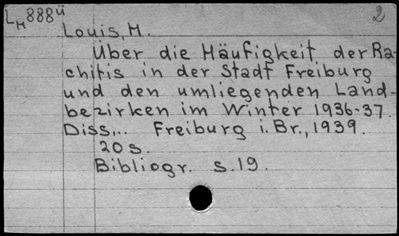 LM888ü 2
Louis, M.
Über die Häufigkeit der Ra-
chitis in der Stadt Freiburg
und den umliegenden Land-
bezirken im Winter 1936-37.
Diss... Freiburg i. Br., 1939.
20 s.
Bibliogr. s. 19.